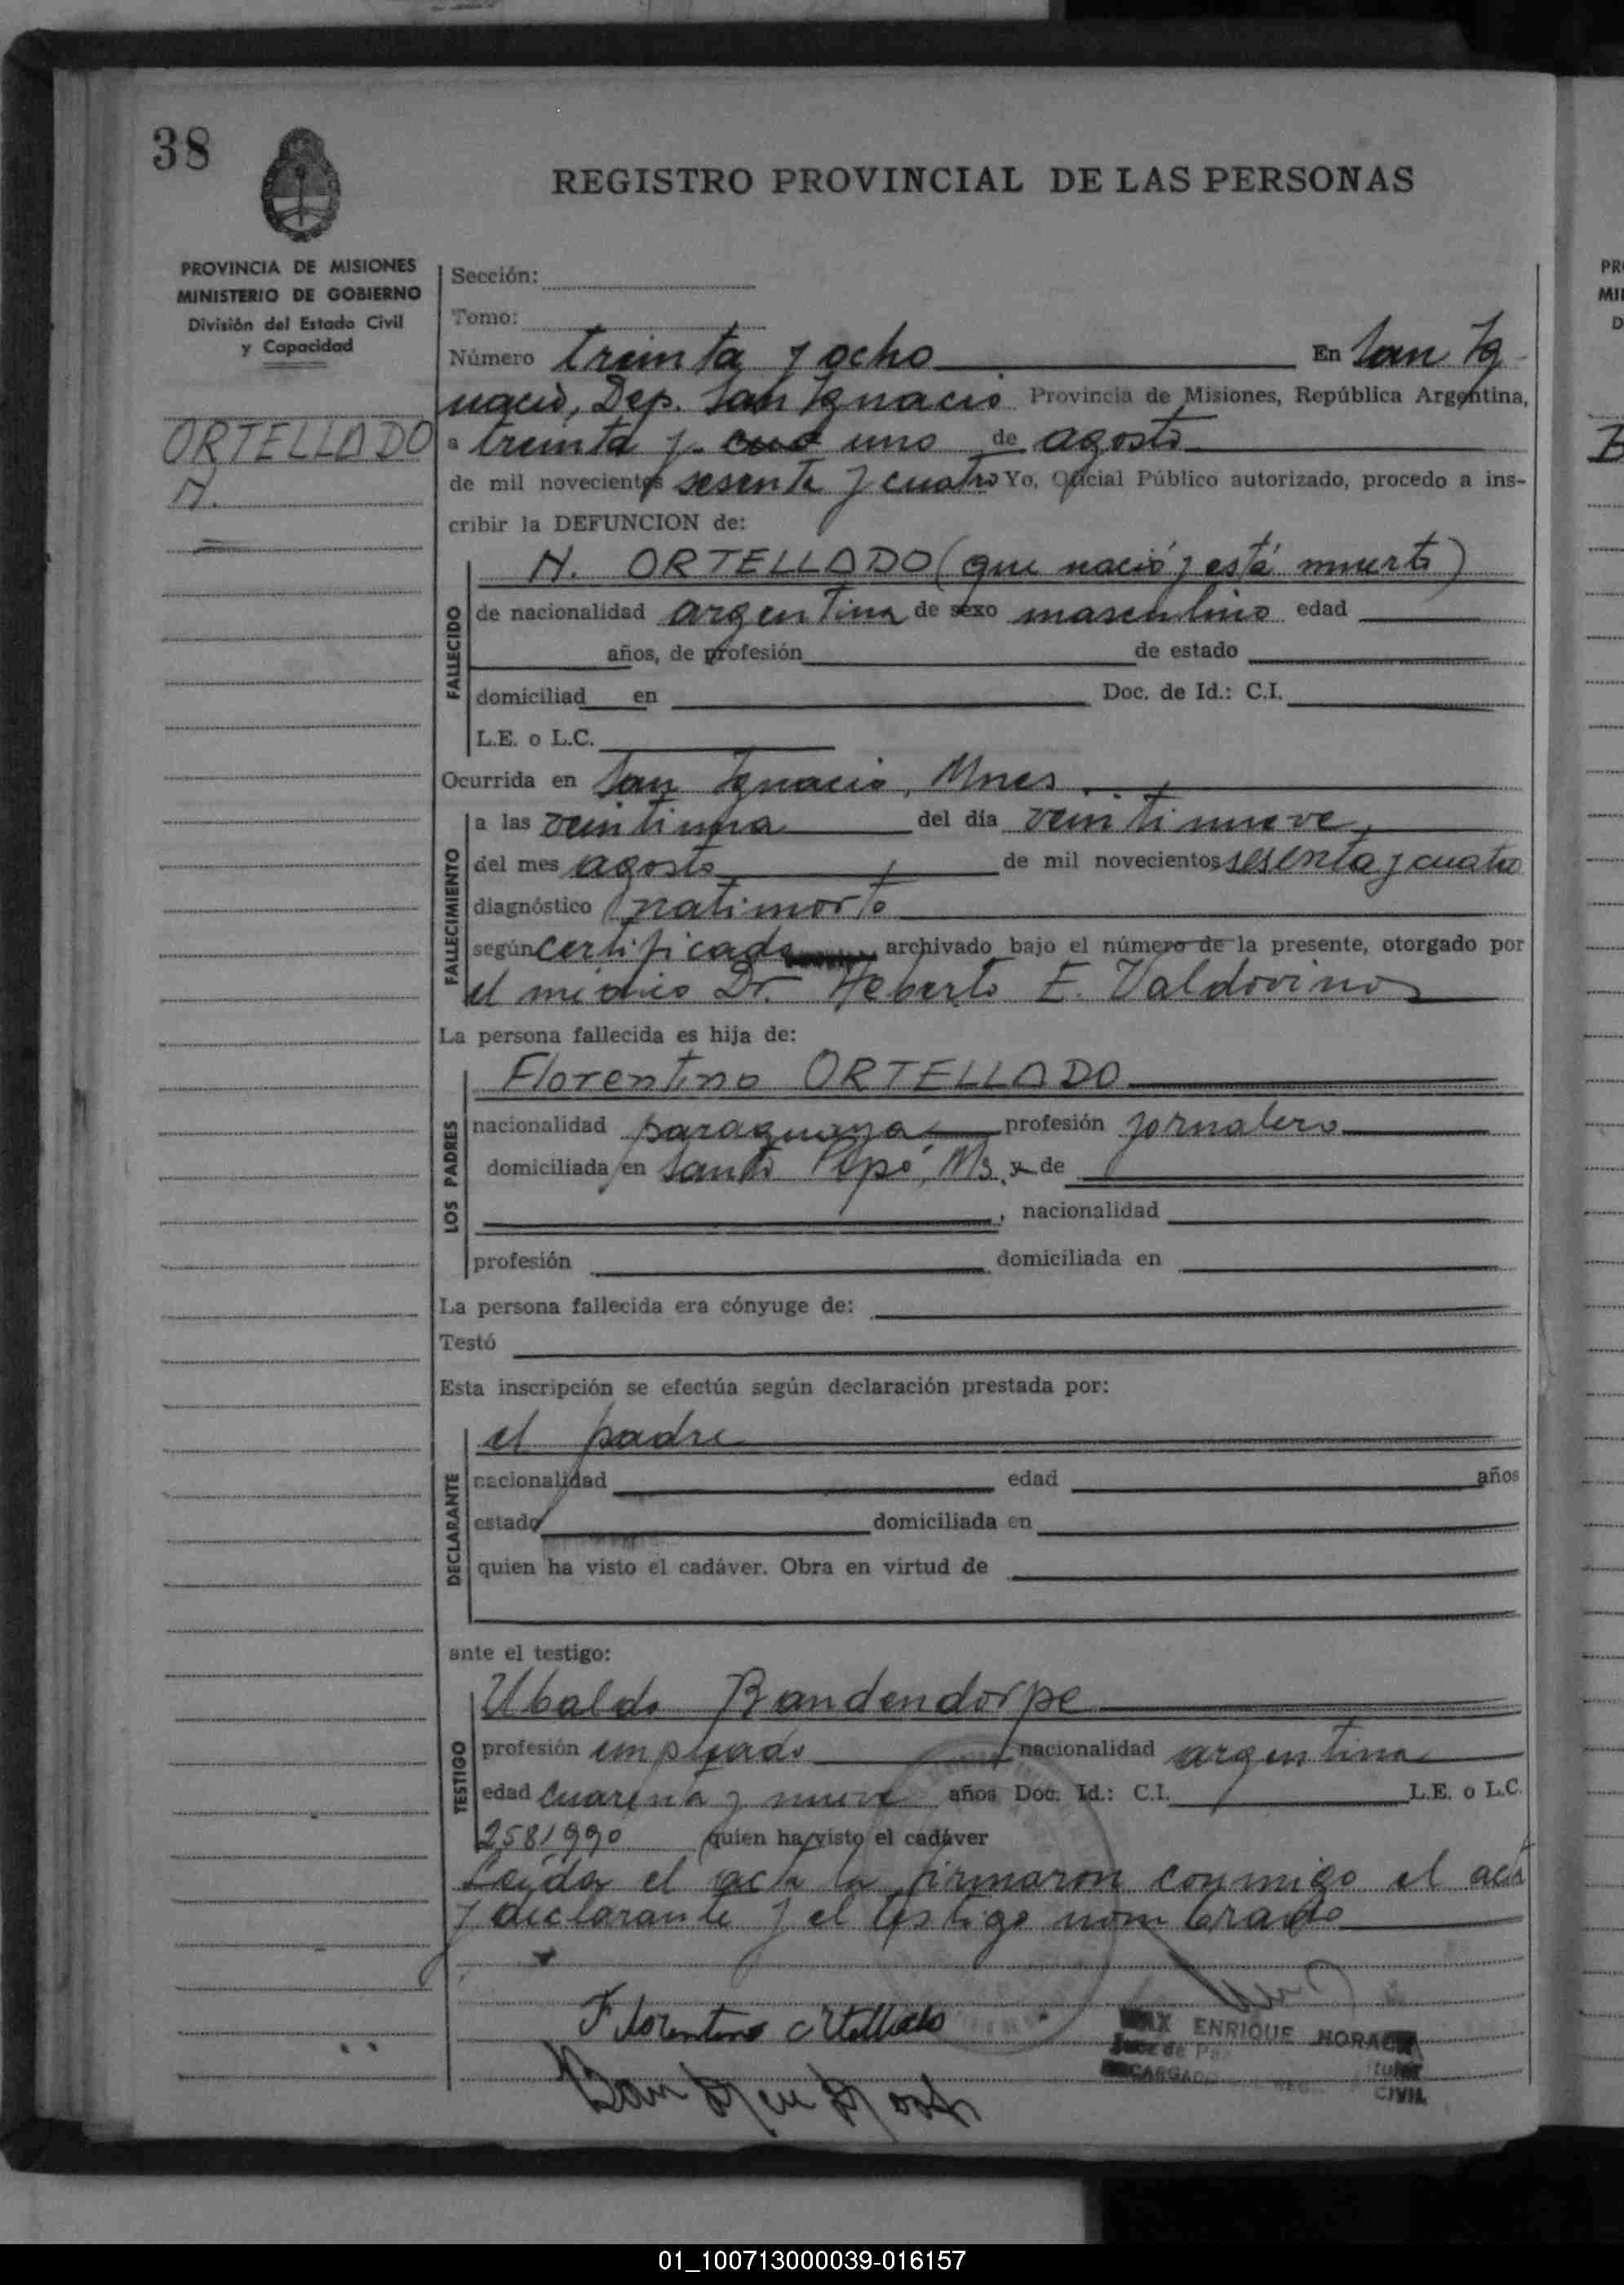 38
REGISTRO PROVINCIAL DE LAS PERSONAS
PROVINCIA DE MISIONES
MINISTERIO DE GOBIERNO
División del Estado Civil
y Capacidad
ORTELLADO
N.
Sección:
Tomo:
Número treinta y ocho En San Ig
nacio, Dep. San Ignacio Provincia de Misiones, República Argentina,
a treinta y uno de agosto
de mil novecientos sesenta y cuatro Yo, Oficial Público autorizado, procedo a ins-
cribir la DEFUNCION de:
N. ORTELLADO (que nació y está muerto)
FALLECIDO
de nacionalidad argentina de sexo masculino edad
años, de profesión de estado
domiciliad en Doc. de Id.: C.I.
L.E. o L.C.
Ocurrida en San Ignacio, Mnes
FALLECIMIENTO
a las veintiuna del día veintinueve
del mes agosto de mil novecientos sesenta y cuatro
diagnóstico natimorto
según certificado archivado bajo el número de la presente, otorgado por
el médico Dr. Heberto E. Valdovinos
La persona fallecida es hija de:
LOS PADRES
Florentino ORTELLADO
nacionalidad paraguaya profesión jornalero
domiciliada en Santo Pipó, Ms y de
, nacionalidad
profesión domiciliada en
La persona fallecida era cónyuge de:
Testó
Esta inscripción se efectúa según declaración prestada por:
DECLARANTE
el padre
nacionalidad edad años
estado domiciliada en
quien ha visto el cadáver. Obra en virtud de
ante el testigo:
TESTIGO
Ubaldo Bandendorpe
profesión empleado nacionalidad argentina
edad cuarenta y nueve años Doc. Id.: C.I. L.E. o L.C.
2581990 quien ha visto el cadáver
Leída el acta la firmaron conmigo el
y declarante y el testigo nombrado
Florentino Ortellado
ENRIQUE
Juez de
CIVIL
PR
MI
D
B
01_100713000039-016157